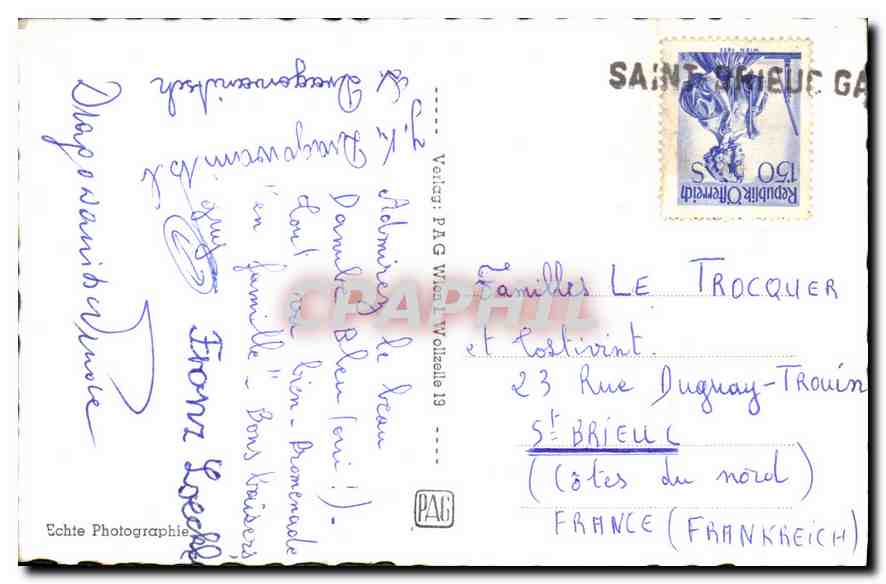 Admirez le beau
Danube Bleu (oui !) -
tout va bien - Promenade
"en famille" - Bons baisers
Franz
J.K. Dragowanitsch
Dragowanitsch
Verlag: PAG Wien I. Wollzeile 19
PAG
Echte Photographie
SAINT-BRIEUC GA
WIEN
Republik Österreich
1'50 S
Familles LE TROCQUER
et Costivint.
23 Rue Duguay-Trouin
St BRIEUC
(Côtes du nord)
FRANCE (FRANKREICH)
CPAPHIL